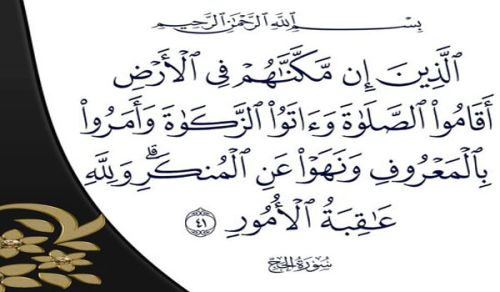 بِسْمِ ٱللَّهِ ٱلرَّحْمَٰنِ ٱلرَّحِيمِ
ٱلَّذِينَ إِن مَّكَّنَّٰهُمْ فِى ٱلْأَرْضِ
أَقَامُوا۟ ٱلصَّلَوٰةَ وَءَاتَوُا۟ ٱلزَّكَوٰةَ وَأَمَرُوا۟
بِٱلْمَعْرُوفِ وَنَهَوْا۟ عَنِ ٱلْمُنكَرِ ۗ وَلِلَّهِ
عَٰقِبَةُ ٱلْأُمُورِ ﴿٤١﴾
سُورَةُ الحَجِّ